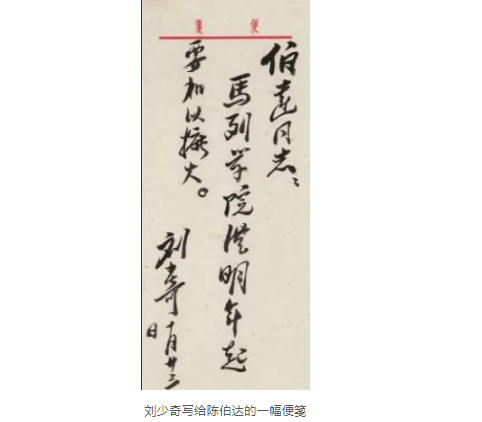 便箋
伯達同志：
馬列学院從明年起
要加以擴大。
刘少奇
十月廿三日
刘少奇写给陈伯达的一幅便笺